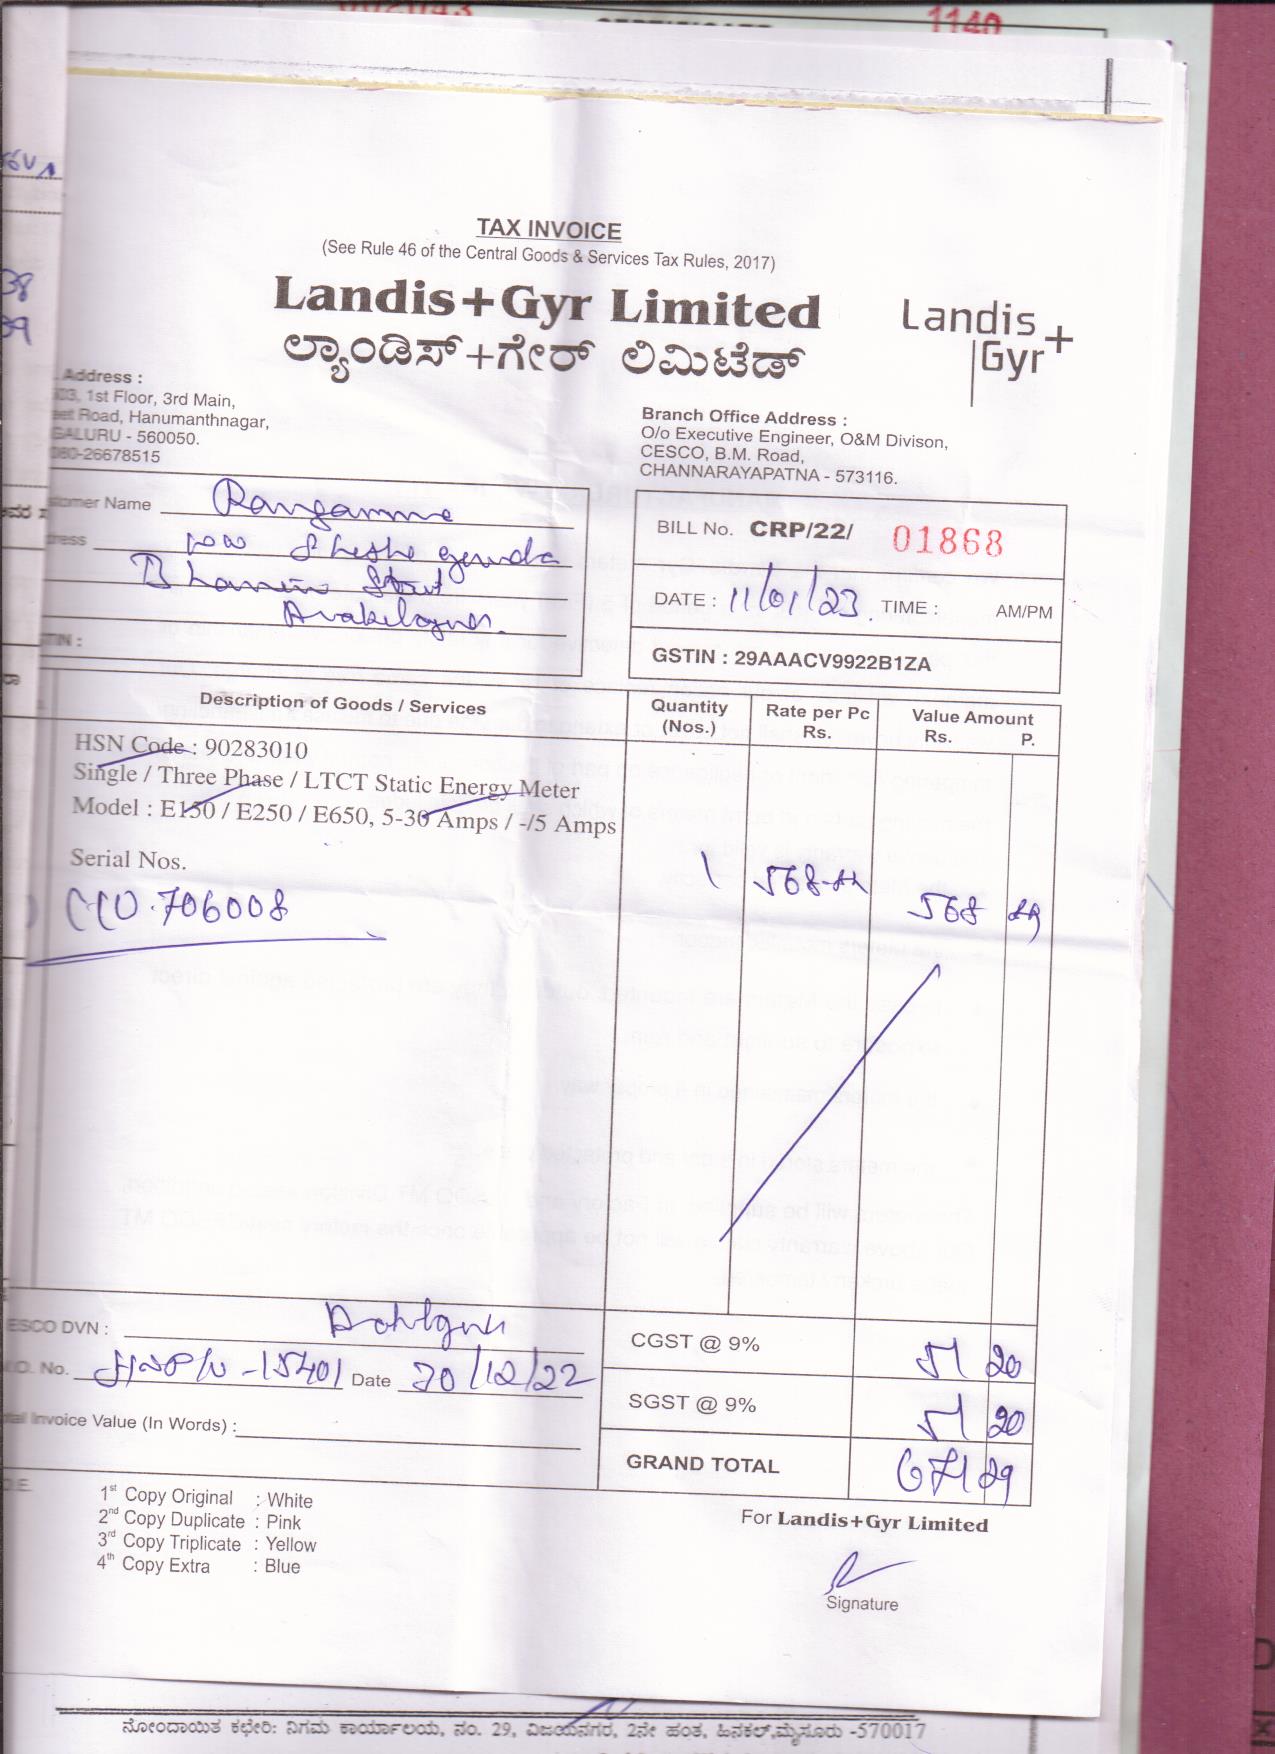 1140
TAX INVOICE
(See Rule 46 of the Central Goods & Services Tax Rules, 2017)
Landis+Gyr Limited
ಲ್ಯಾಂಡಿಸ್+ಗೇರ್ ಲಿಮಿಟೆಡ್
Landis
Gyr+
Address :
1st Floor, 3rd Main,
Road, Hanumanthnagar,
560050.
080-26678515
Branch Office Address :
O/o Executive Engineer, O&M Divison,
CESCO, B.M. Road,
CHANNARAYAPATNA - 573116.
Customer Name Rangamma
w/o
Street
BILL No. CRP/22/ 01868
DATE : 11/01/23. TIME : AM/PM
GSTIN : 29AAACV9922B1ZA
Description of Goods / Services
Quantity (Nos.)
Rate per Pc Rs.
Value Amount Rs. P.
HSN Code : 90283010
Single / Three Phase / LTCT Static Energy Meter
Model : E150 / E250 / E650, 5-30 Amps / -/5 Amps
Serial Nos.
706008
1 568 568
CESCO DVN :
No. 15401 Date 30/12/22
Invoice Value (In Words) :
CGST @ 9% 51 20
SGST @ 9% 51 20
GRAND TOTAL 671 29
1st Copy Original : White
2nd Copy Duplicate : Pink
3rd Copy Triplicate : Yellow
4th Copy Extra : Blue
For Landis+Gyr Limited
Signature
ನೋಂದಾಯಿತ ಕಛೇರಿ: ನಿಗಮ ಕಾರ್ಯಾಲಯ, ನಂ. 29, ವಿಜಯನಗರ, 2ನೇ ಹಂತ, ಹಿನಕಲ್,ಮೈಸೂರು -570017